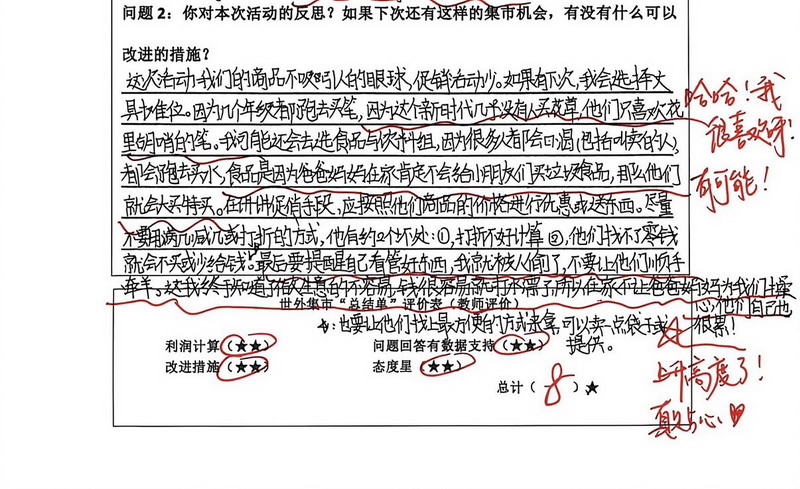 问题 2：你对本次活动的反思？如果下次还有这样的集市机会，有没有什么可以
改进的措施？
这次活动我们的商品不吸引人的眼球，促销活动少。如果有下次，我会选择文
具书准位。因为几个年级都跑去买笔，因为这个新时代几乎没有人买花草，他们只喜欢花
里胡哨的笔。我可能还会去选食品与饮料组，因为很多人都会口渴（包括叫卖的人），
都会跑去买水，食品是因为爸爸妈妈在家肯定不会给小朋友们买垃圾食品，那么他们
就会大买特买。在讲讲促销手段，应按照他们商品的价格进行优惠或送东西。尽量
不要用满几减几或打折的方式，他有约2个坏处：①，打折不好计算②，他们找不了零钱
就会不买或少给钱。最后要提醒自己看管好东西，我就被人偷了，不要让他们顺手
牵羊。这我终于知道了做生意的不容易，钱很容易就打水漂了所以在家不让爸爸妈妈为我们操
心，他们自己也
很累！
世外集市“总结单”评价表（教师评价）
也要让他们找上最方便的方式来拿，可以卖一点袋子或
提供。
利润计算（★★） 问题回答有数据支持（★★）
改进措施（★★） 态度星（★★）
总计（8）★
哈哈！我
很喜欢呀！
有可能！
上升高度了！
真贴心 ♥